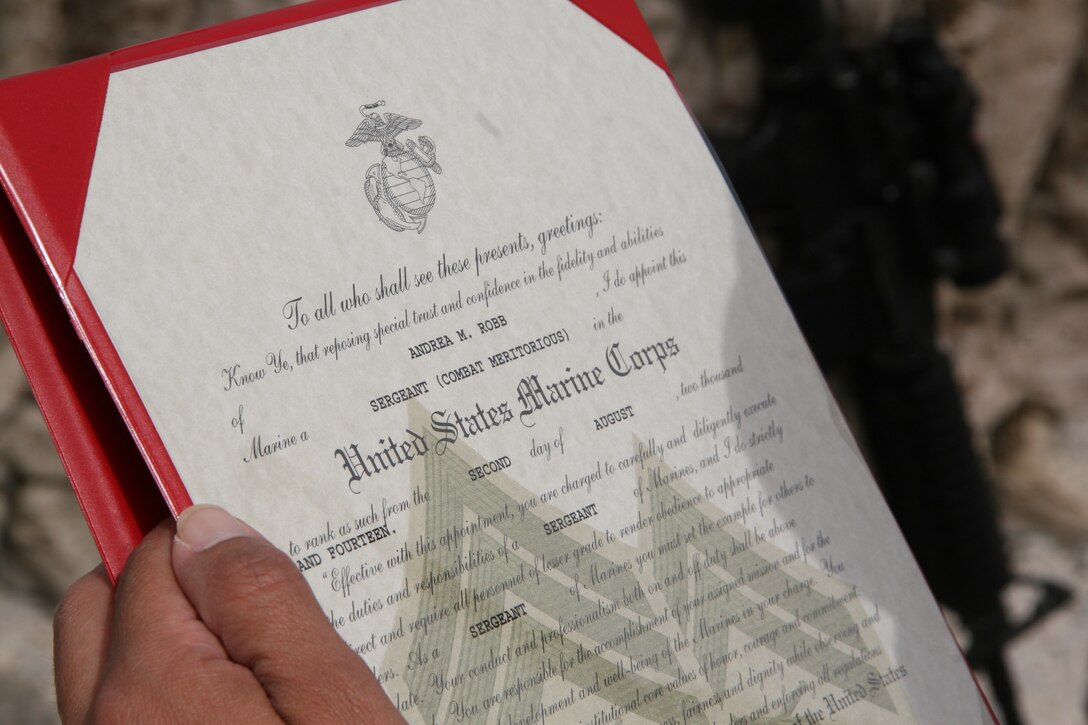 To all who shall see these presents, greetings:
Know Ye, that reposing special trust and confidence in the fidelity and abilities
of ANDREA M. ROBB , I do appoint this
Marine a SERGEANT (COMBAT MERITORIOUS) in the
United States Marine Corps
to rank as such from the SECOND day of AUGUST , two thousand
AND FOURTEEN.
Effective with this appointment, you are charged to carefully and diligently execute
the duties and responsibilities of a SERGEANT of Marines, and I do strictly
and require all personnel of lesser grade to render obedience to appropriate
As a SERGEANT of Marines you must set the example for others to
Your conduct and professionalism both on and off duty shall be above
You are responsible for the accomplishment of your assigned mission and for the
and well-being of the Marines in your charge. You
institutional core values of honor, courage and commitment
fairness and dignity while observing and
and enforcing all regulations
of the United States